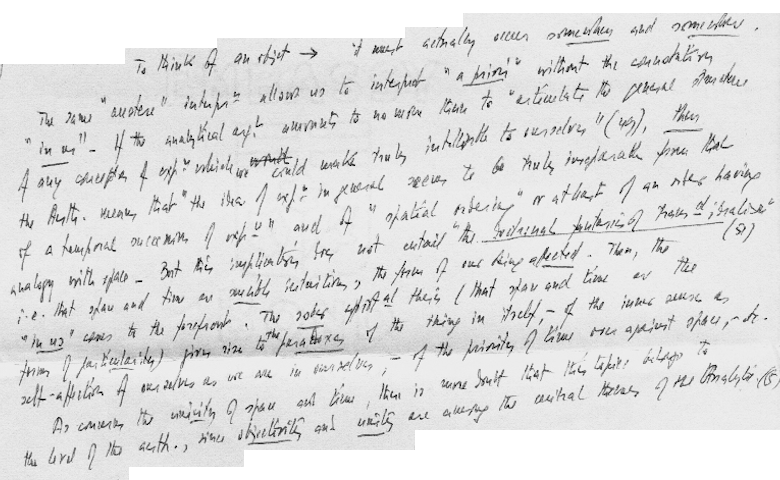 To think of an object → it must actually occur somewhere and somewhen.
The same "austere" interpr.on allows us to interpret "a priori" without the connotation
"in us" – If the analytical arg.t amounts to no more than to "articulate the general structure
of any conception of exp.ce which we could make truly intelligible to ourselves" (  ), then
the Aesth. means that "the idea of exp.ce in general seems to be truly inseparable from that
of a temporal succession of exp.ce" and of "spatial ordering" or at least of an order having
analogy with space – But this implication does not entail "the          fantasies of transc.al idealism"
i.e. that space and time are sensible intuitions, the forms of our being affected. Then, the (51)
"in us" comes to the forefront. The sober         thesis (that space and time are the
forms of particularity) gives rise to the paradoxes of the thing in itself, – of the inner sense as
self-affection of ourselves as we are in ourselves, – of the priority of time over against space, – etc.
As concerns the unicity of space and time, there is more doubt that this topic belongs to
the level of the aesth., since objectivity and unity are among the central themes of the Analytic (5